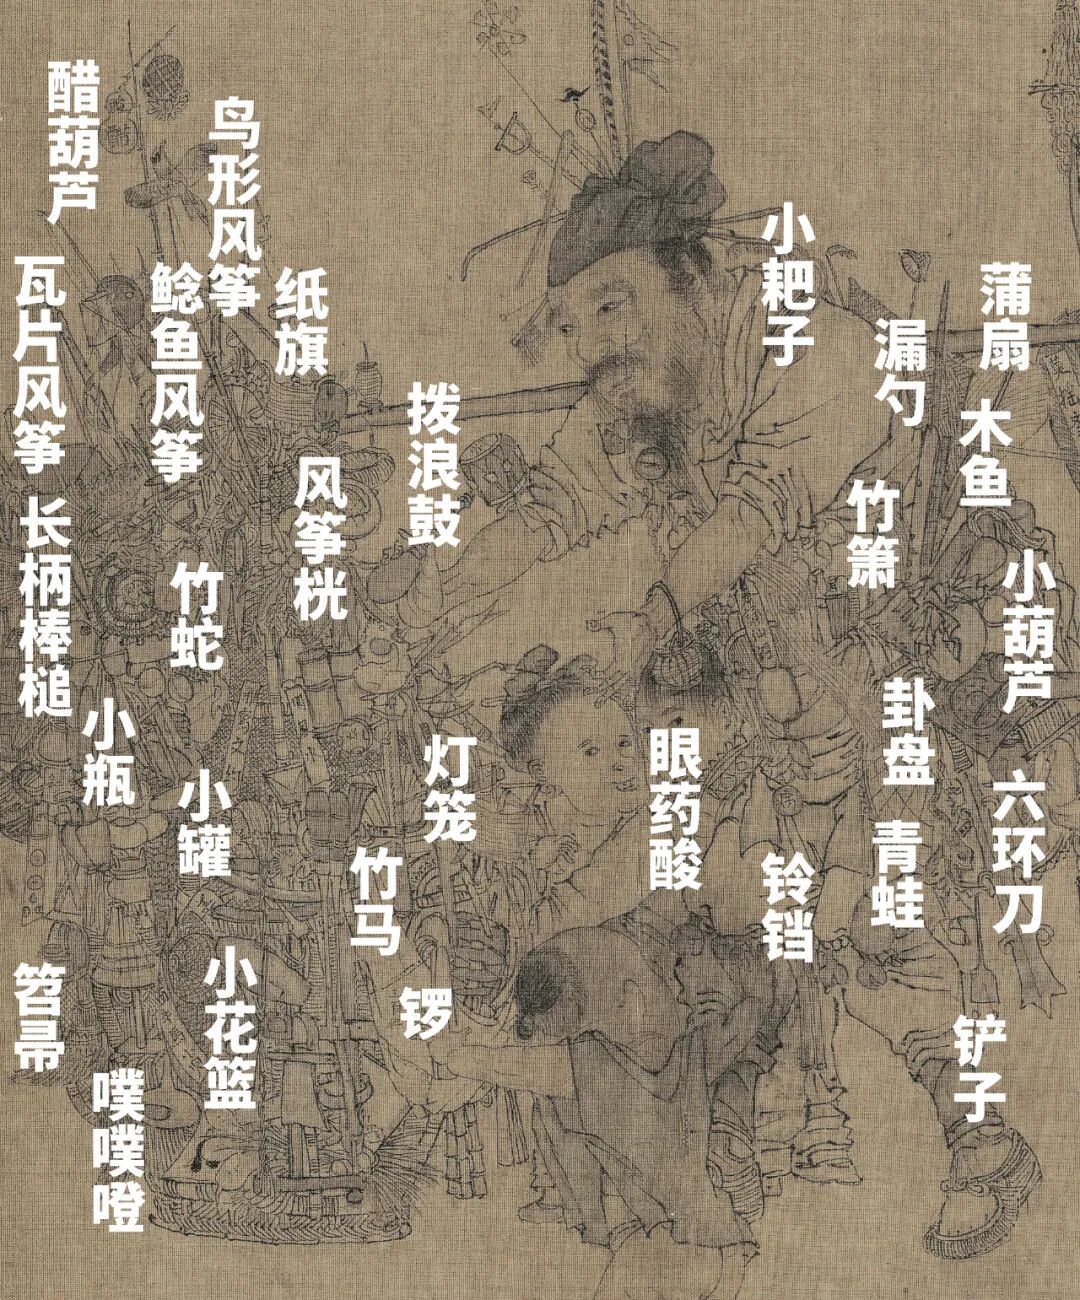 醋葫芦
鸟形风筝
瓦片风筝
鲶鱼风筝
纸旗
小耙子
蒲扇
漏勺
拨浪鼓
木鱼
风筝桄
竹箫
长柄棒槌
竹蛇
小葫芦
小瓶
卦盘
灯笼
眼药酸
小罐
六环刀
竹马
青蛙
铃铛
笤帚
小花篮
锣
铲子
噗噗噔